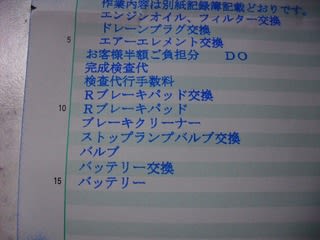 作業内容は別紙記録簿記載どおりです。
エンジンオイル、フィルター交換
ドレーンプラグ交換
5 エアーエレメント交換
お客様半額ご負担分 DO
完成検査代
検査代行手数料
Rブレーキパッド交換
10 Rブレーキパッド
ブレーキクリーナー
ストップランプバルブ交換
バルブ
バッテリー交換
15 バッテリー